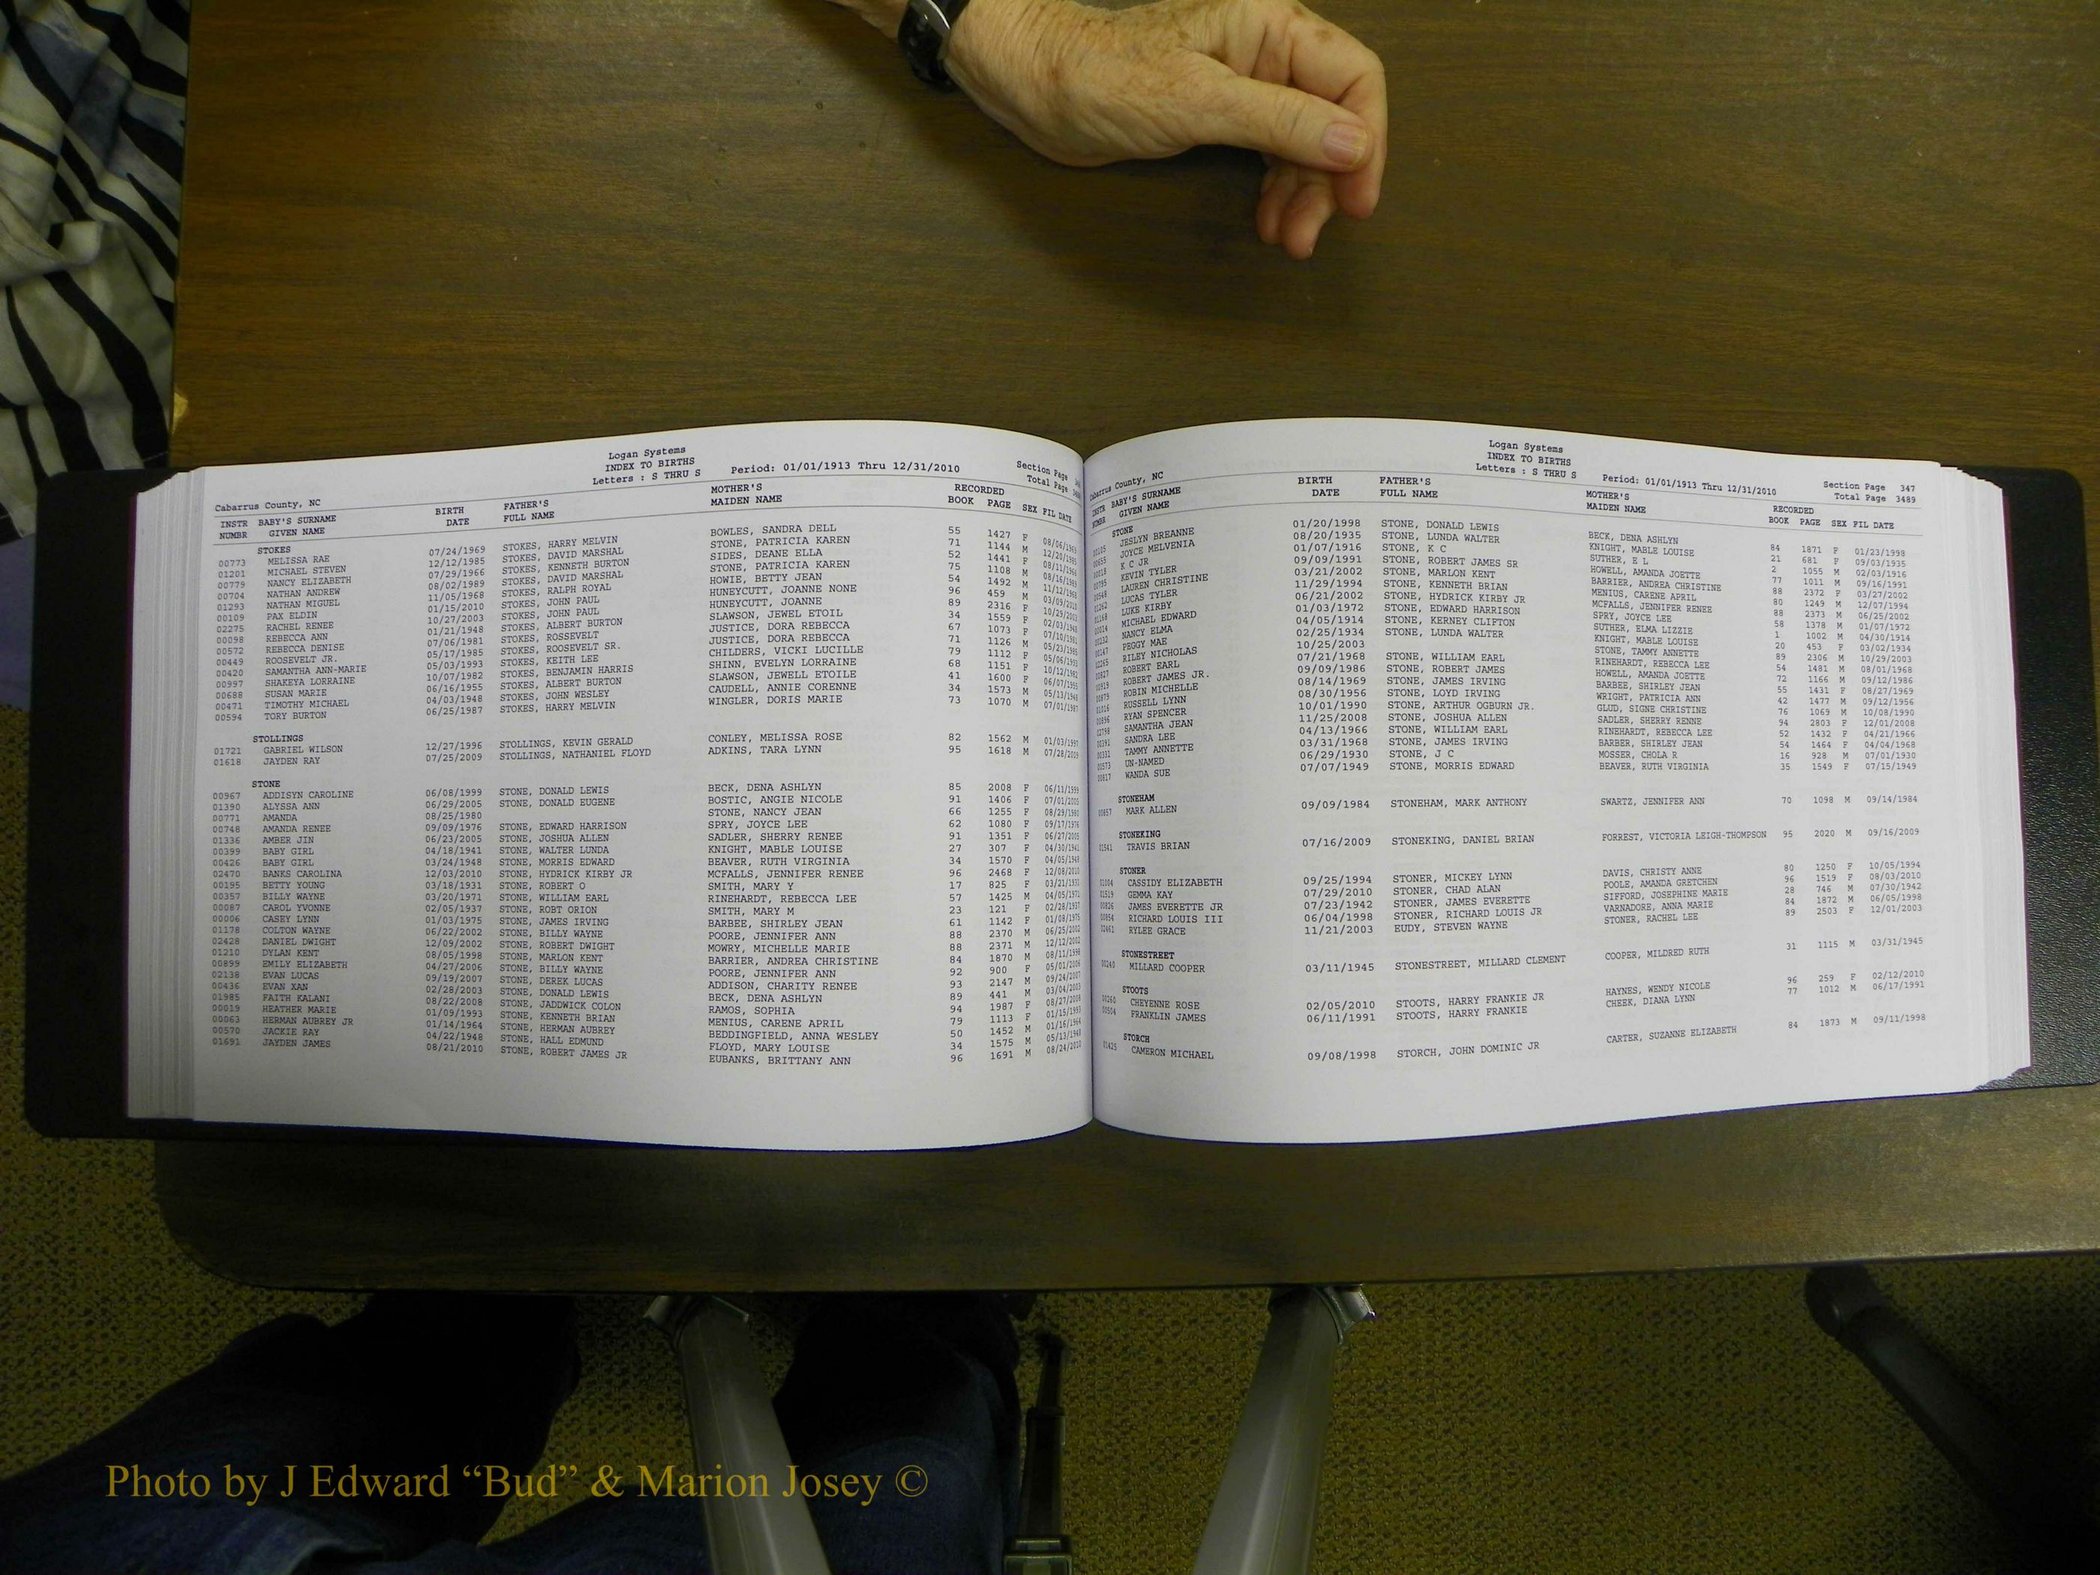 Logan Systems
INDEX TO BIRTHS
Letters : S THRU S
Period: 01/01/1913 Thru 12/31/2010
Section Page
Total Page
Cabarrus County, NC
INSTR BABY'S SURNAME BIRTH FATHER'S MOTHER'S RECORDED
NUMBR GIVEN NAME DATE FULL NAME MAIDEN NAME BOOK PAGE SEX FIL DATE
STOKES
00773 MELISSA RAE 07/24/1969 STOKES, HARRY MELVIN BOWLES, SANDRA DELL 55 1427 F 08/06/1969
01201 MICHAEL STEVEN 12/12/1985 STOKES, DAVID MARSHAL STONE, PATRICIA KAREN 71 1144 M 12/20/1985
00779 NANCY ELIZABETH 07/29/1966 STOKES, KENNETH BURTON SIDES, DEANE ELLA 52 1441 F 08/11/1966
00704 NATHAN ANDREW 08/02/1989 STOKES, DAVID MARSHAL STONE, PATRICIA KAREN 75 1108 M 08/16/1989
01293 NATHAN MIGUEL 11/05/1968 STOKES, RALPH ROYAL HOWIE, BETTY JEAN 54 1492 M 11/12/1968
00109 PAX ELDIN 01/15/2010 STOKES, JOHN PAUL HUNEYCUTT, JOANNE NONE 96 459 M 03/09/2010
02275 RACHEL RENEE 10/27/2003 STOKES, JOHN PAUL HUNEYCUTT, JOANNE 89 2316 F 10/29/2003
00098 REBECCA ANN 01/21/1948 STOKES, ALBERT BURTON SLAWSON, JEWEL ETOIL 34 1559 F 02/03/1948
00572 REBECCA DENISE 07/06/1981 STOKES, ROSSEVELT JUSTICE, DORA REBECCA 67 1073 F 07/10/1981
00449 ROOSEVELT JR. 05/17/1985 STOKES, ROOSEVELT SR. JUSTICE, DORA REBECCA 71 1126 M 05/23/1985
00420 SAMANTHA ANN-MARIE 05/03/1993 STOKES, KEITH LEE CHILDERS, VICKI LUCILLE 79 1112 F 05/06/1993
00997 SHAKEYA LORRAINE 10/07/1982 STOKES, BENJAMIN HARRIS SHINN, EVELYN LORRAINE 68 1151 F 10/12/1982
00688 SUSAN MARIE 06/16/1955 STOKES, ALBERT BURTON SLAWSON, JEWELL ETOILE 41 1600 F
00471 TIMOTHY MICHAEL 04/03/1948 STOKES, JOHN WESLEY CAUDELL, ANNIE CORENNE 34 1573 M 05/13/1948
00594 TORY BURTON 06/25/1987 STOKES, HARRY MELVIN WINGLER, DORIS MARIE 73 1070 M 07/01/1987
STOLLINGS
01721 GABRIEL WILSON 12/27/1996 STOLLINGS, KEVIN GERALD CONLEY, MELISSA ROSE 82 1562 M 01/03/1997
01618 JAYDEN RAY 07/25/2009 STOLLINGS, NATHANIEL FLOYD ADKINS, TARA LYNN 95 1618 M 07/28/2009
STONE
00967 ADDISYN CAROLINE 06/08/1999 STONE, DONALD LEWIS BECK, DENA ASHLYN 85 2008 F 06/11/1999
01390 ALYSSA ANN 06/29/2005 STONE, DONALD EUGENE BOSTIC, ANGIE NICOLE 91 1406 F 07/01/2005
00771 AMANDA 08/25/1980 STONE, NANCY JEAN 66 1255 F 08/29/1980
00748 AMANDA RENEE 09/09/1976 STONE, EDWARD HARRISON SPRY, JOYCE LEE 62 1080 F 09/17/1976
01336 AMBER JIN 06/23/2005 STONE, JOSHUA ALLEN SADLER, SHERRY RENEE 91 1351 F 06/27/2005
00399 BABY GIRL 04/18/1941 STONE, WALTER LUNDA KNIGHT, MABLE LOUISE 27 307 F 04/30/1941
00426 BABY GIRL 03/24/1948 STONE, MORRIS EDWARD BEAVER, RUTH VIRGINIA 34 1570 F 04/05/1948
02470 BANKS CAROLINA 12/03/2010 STONE, HYDRICK KIRBY JR MCFALLS, JENNIFER RENEE 96 2468 F 12/08/2010
00195 BETTY YOUNG 03/18/1931 STONE, ROBERT O SMITH, MARY Y 17 825 F 03/21/1931
00357 BILLY WAYNE 03/20/1971 STONE, WILLIAM EARL RINEHARDT, REBECCA LEE 57 1425 M 04/05/1971
00087 CAROL YVONNE 02/05/1937 STONE, ROBT ORION SMITH, MARY M 23 121 F 02/28/1937
00006 CASEY LYNN 01/03/1975 STONE, JAMES IRVING BARBEE, SHIRLEY JEAN 61 1142 F 01/08/1975
01178 COLTON WAYNE 06/22/2002 STONE, BILLY WAYNE POORE, JENNIFER ANN 88 2370 M 06/25/2002
02428 DANIEL DWIGHT 12/09/2002 STONE, ROBERT DWIGHT MOWRY, MICHELLE MARIE 88 2371 M 12/12/2002
01210 DYLAN KENT 08/05/1998 STONE, MARLON KENT BARRIER, ANDREA CHRISTINE 84 1870 M 08/11/1998
00899 EMILY ELIZABETH 04/27/2006 STONE, BILLY WAYNE POORE, JENNIFER ANN 92 900 F 05/01/2006
02138 EVAN LUCAS 09/19/2007 STONE, DEREK LUCAS ADDISON, CHARITY RENEE 93 2147 M 09/24/2007
00436 EVAN XAN 02/28/2003 STONE, DONALD LEWIS BECK, DENA ASHLYN 89 441 M 03/04/2003
01985 FAITH KALANI 08/22/2008 STONE, JADDWICK COLON RAMOS, SOPHIA 94 1987 F 08/27/2008
00019 HEATHER MARIE 01/09/1993 STONE, KENNETH BRIAN MENIUS, CARENE APRIL 79 1113 F 01/15/1993
00063 HERMAN AUBREY JR 01/14/1964 STONE, HERMAN AUBREY BEDDINGFIELD, ANNA WESLEY 50 1452 M 01/16/1964
00570 JACKIE RAY 04/22/1948 STONE, HALL EDMUND FLOYD, MARY LOUISE 34 1575 M 05/13/1948
01691 JAYDEN JAMES 08/21/2010 STONE, ROBERT JAMES JR EUBANKS, BRITTANY ANN 96 1691 M 08/24/2010
Logan Systems
INDEX TO BIRTHS
Letters : S THRU S
Period: 01/01/1913 Thru 12/31/2010
Section Page 347
Total Page 3489
Cabarrus County, NC
INSTR BABY'S SURNAME BIRTH FATHER'S MOTHER'S RECORDED
NUMBR GIVEN NAME DATE FULL NAME MAIDEN NAME BOOK PAGE SEX FIL DATE
STONE
JESLYN BREANNE 01/20/1998 STONE, DONALD LEWIS BECK, DENA ASHLYN 84 1871 F 01/23/1998
JOYCE MELVENIA 08/20/1935 STONE, LUNDA WALTER KNIGHT, MABLE LOUISE 21 681 F 09/03/1935
K C JR 01/07/1916 STONE, K C SUTHER, E L 2 1055 M 02/03/1916
KEVIN TYLER 09/09/1991 STONE, ROBERT JAMES SR HOWELL, AMANDA JOETTE 77 1011 M 09/16/1991
LAUREN CHRISTINE 03/21/2002 STONE, MARLON KENT BARRIER, ANDREA CHRISTINE 88 2372 F 03/27/2002
LUCAS TYLER 11/29/1994 STONE, KENNETH BRIAN MENIUS, CARENE APRIL 80 1249 M 12/07/1994
LUKE KIRBY 06/21/2002 STONE, HYDRICK KIRBY JR MCFALLS, JENNIFER RENEE 88 2373 M 06/25/2002
MICHAEL EDWARD 01/03/1972 STONE, EDWARD HARRISON SPRY, JOYCE LEE 58 1378 M 01/07/1972
NANCY ELMA 04/05/1914 STONE, KERNEY CLIFTON SUTHER, ELMA LIZZIE 1 1002 M 04/30/1914
PEGGY MAE 02/25/1934 STONE, LUNDA WALTER KNIGHT, MABLE LOUISE 20 453 F 03/02/1934
RILEY NICHOLAS 10/25/2003 STONE, TAMMY ANNETTE 89 2306 M 10/29/2003
ROBERT EARL 07/21/1968 STONE, WILLIAM EARL RINEHARDT, REBECCA LEE 54 1481 M 08/01/1968
ROBERT JAMES JR. 09/09/1986 STONE, ROBERT JAMES HOWELL, AMANDA JOETTE 72 1166 M 09/12/1986
ROBIN MICHELLE 08/14/1969 STONE, JAMES IRVING BARBEE, SHIRLEY JEAN 55 1431 F 08/27/1969
RUSSELL LYNN 08/30/1956 STONE, LOYD IRVING WRIGHT, PATRICIA ANN 42 1477 M 09/12/1956
RYAN SPENCER 10/01/1990 STONE, ARTHUR OGBURN JR. GLUD, SIGNE CHRISTINE 76 1069 M 10/08/1990
SAMANTHA JEAN 11/25/2008 STONE, JOSHUA ALLEN SADLER, SHERRY RENNE 94 2803 F 12/01/2008
SANDRA LEE 04/13/1966 STONE, WILLIAM EARL RINEHARDT, REBECCA LEE 52 1432 F 04/21/1966
TAMMY ANNETTE 03/31/1968 STONE, JAMES IRVING BARBER, SHIRLEY JEAN 54 1464 F 04/04/1968
00573 UN-NAMED 06/29/1930 STONE, J C MOSSER, CHOLA R 16 928 M 07/01/1930
00817 WANDA SUE 07/07/1949 STONE, MORRIS EDWARD BEAVER, RUTH VIRGINIA 35 1549 F 07/15/1949
STONEHAM
00857 MARK ALLEN 09/09/1984 STONEHAM, MARK ANTHONY SWARTZ, JENNIFER ANN 70 1098 M 09/14/1984
STONEKING
01941 TRAVIS BRIAN 07/16/2009 STONEKING, DANIEL BRIAN FORREST, VICTORIA LEIGH-THOMPSON 95 2020 M 09/16/2009
STONER
01004 CASSIDY ELIZABETH 09/25/1994 STONER, MICKEY LYNN DAVIS, CHRISTY ANNE 80 1250 F 10/05/1994
01519 GEMMA KAY 07/29/2010 STONER, CHAD ALAN POOLE, AMANDA GRETCHEN 96 1519 F 08/03/2010
00826 JAMES EVERETTE JR 07/23/1942 STONER, JAMES EVERETTE SIFFORD, JOSEPHINE MARIE 28 746 M 07/30/1942
00854 RICHARD LOUIS III 06/04/1998 STONER, RICHARD LOUIS JR VARNADORE, ANNA MARIE 84 1872 M 06/05/1998
02461 RYLEE GRACE 11/21/2003 EUDY, STEVEN WAYNE STONER, RACHEL LEE 89 2503 F 12/01/2003
STONESTREET
00240 MILLARD COOPER 03/11/1945 STONESTREET, MILLARD CLEMENT COOPER, MILDRED RUTH 31 1115 M 03/31/1945
STOOTS
00260 CHEYENNE ROSE 02/05/2010 STOOTS, HARRY FRANKIE JR HAYNES, WENDY NICOLE 96 259 F 02/12/2010
00504 FRANKLIN JAMES 06/11/1991 STOOTS, HARRY FRANKIE CHEEK, DIANA LYNN 77 1012 M 06/17/1991
STORCH
01425 CAMERON MICHAEL 09/08/1998 STORCH, JOHN DOMINIC JR CARTER, SUZANNE ELIZABETH 84 1873 M 09/11/1998
Photo by J Edward “Bud” & Marion Josey ©